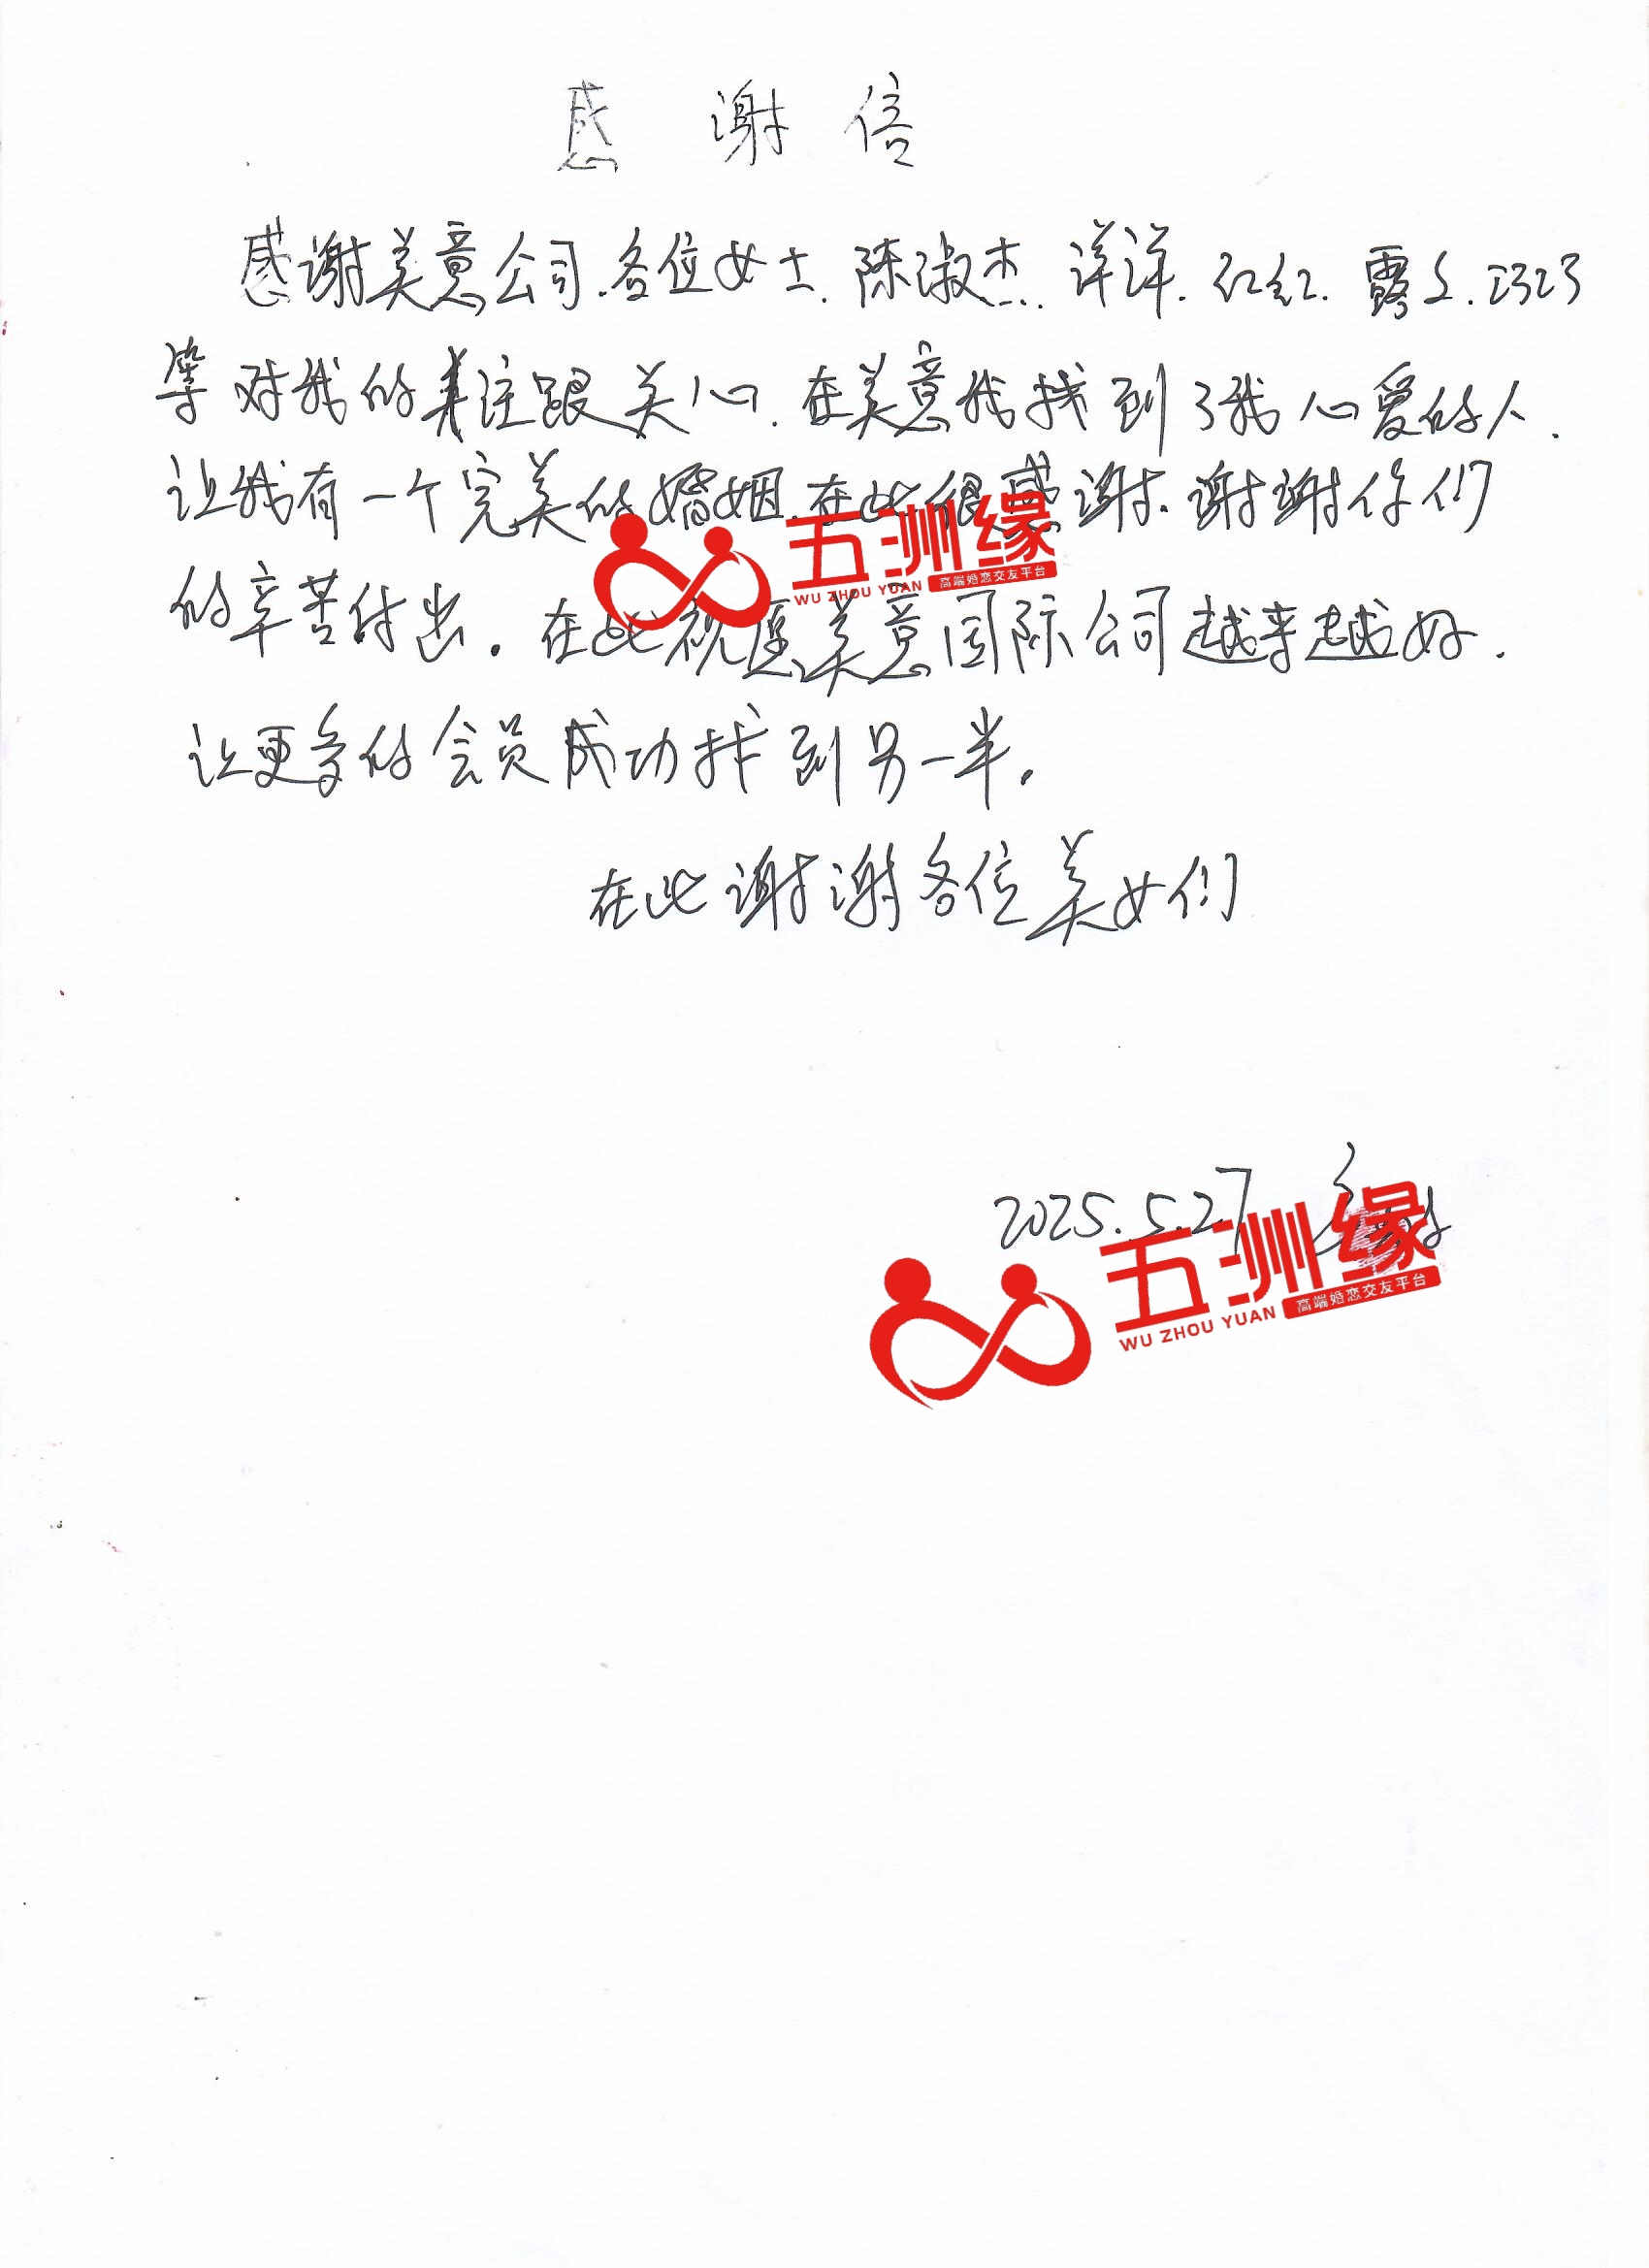 感谢信
感谢美意公司.各位女士.陈淑杰.洋洋.红红.露文.巧巧
等对我的关注跟关心.在美意我找到了我心爱的人.
让我有一个完美的婚姻.在此很感谢.谢谢你们
五洲缘
WU ZHOU YUAN 高端婚恋交友平台
的辛苦付出.在此祝愿美意国际公司越来越好.
让更多的会员成功找到另一半.
在此谢谢各位美女们
2025.5.27
五洲缘
WU ZHOU YUAN 高端婚恋交友平台